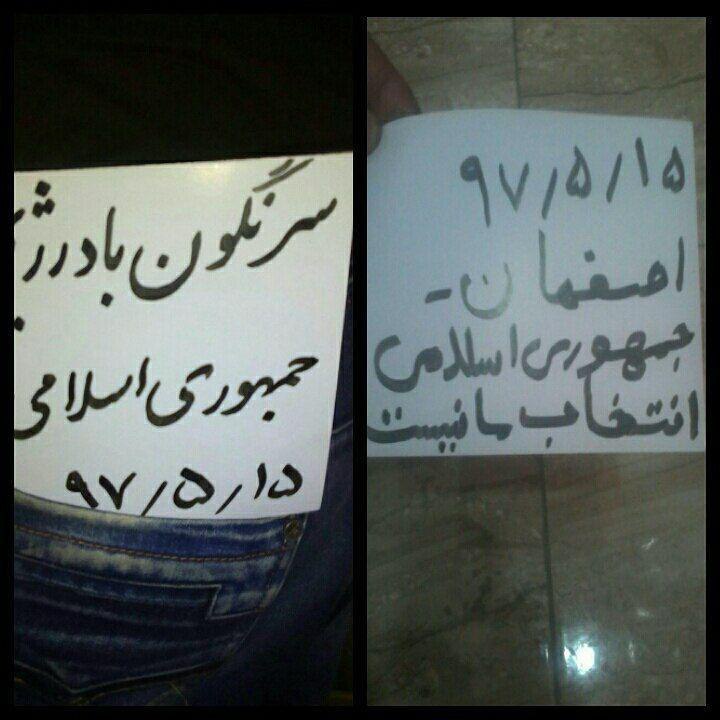 سرنگون باد رژ
جمهوری اسلامی
۹۷/۵/۱۵
۹۷/۵/۱۵
اصفهان-
جمهوری اسلامی
انتخاب ما نیست